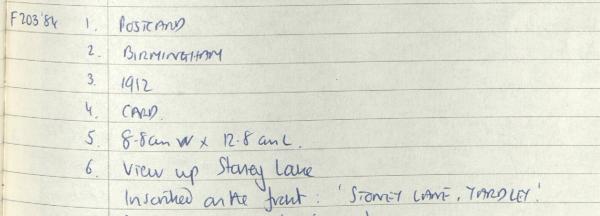 F203'84 1. POSTCARD
2. BIRMINGHAM
3. 1912
4. CARD.
5. 8.8cm W x 12.8cm L.
6. View up Stoney Lane
Inscribed on the front: 'STONEY LANE, YARDLEY.'